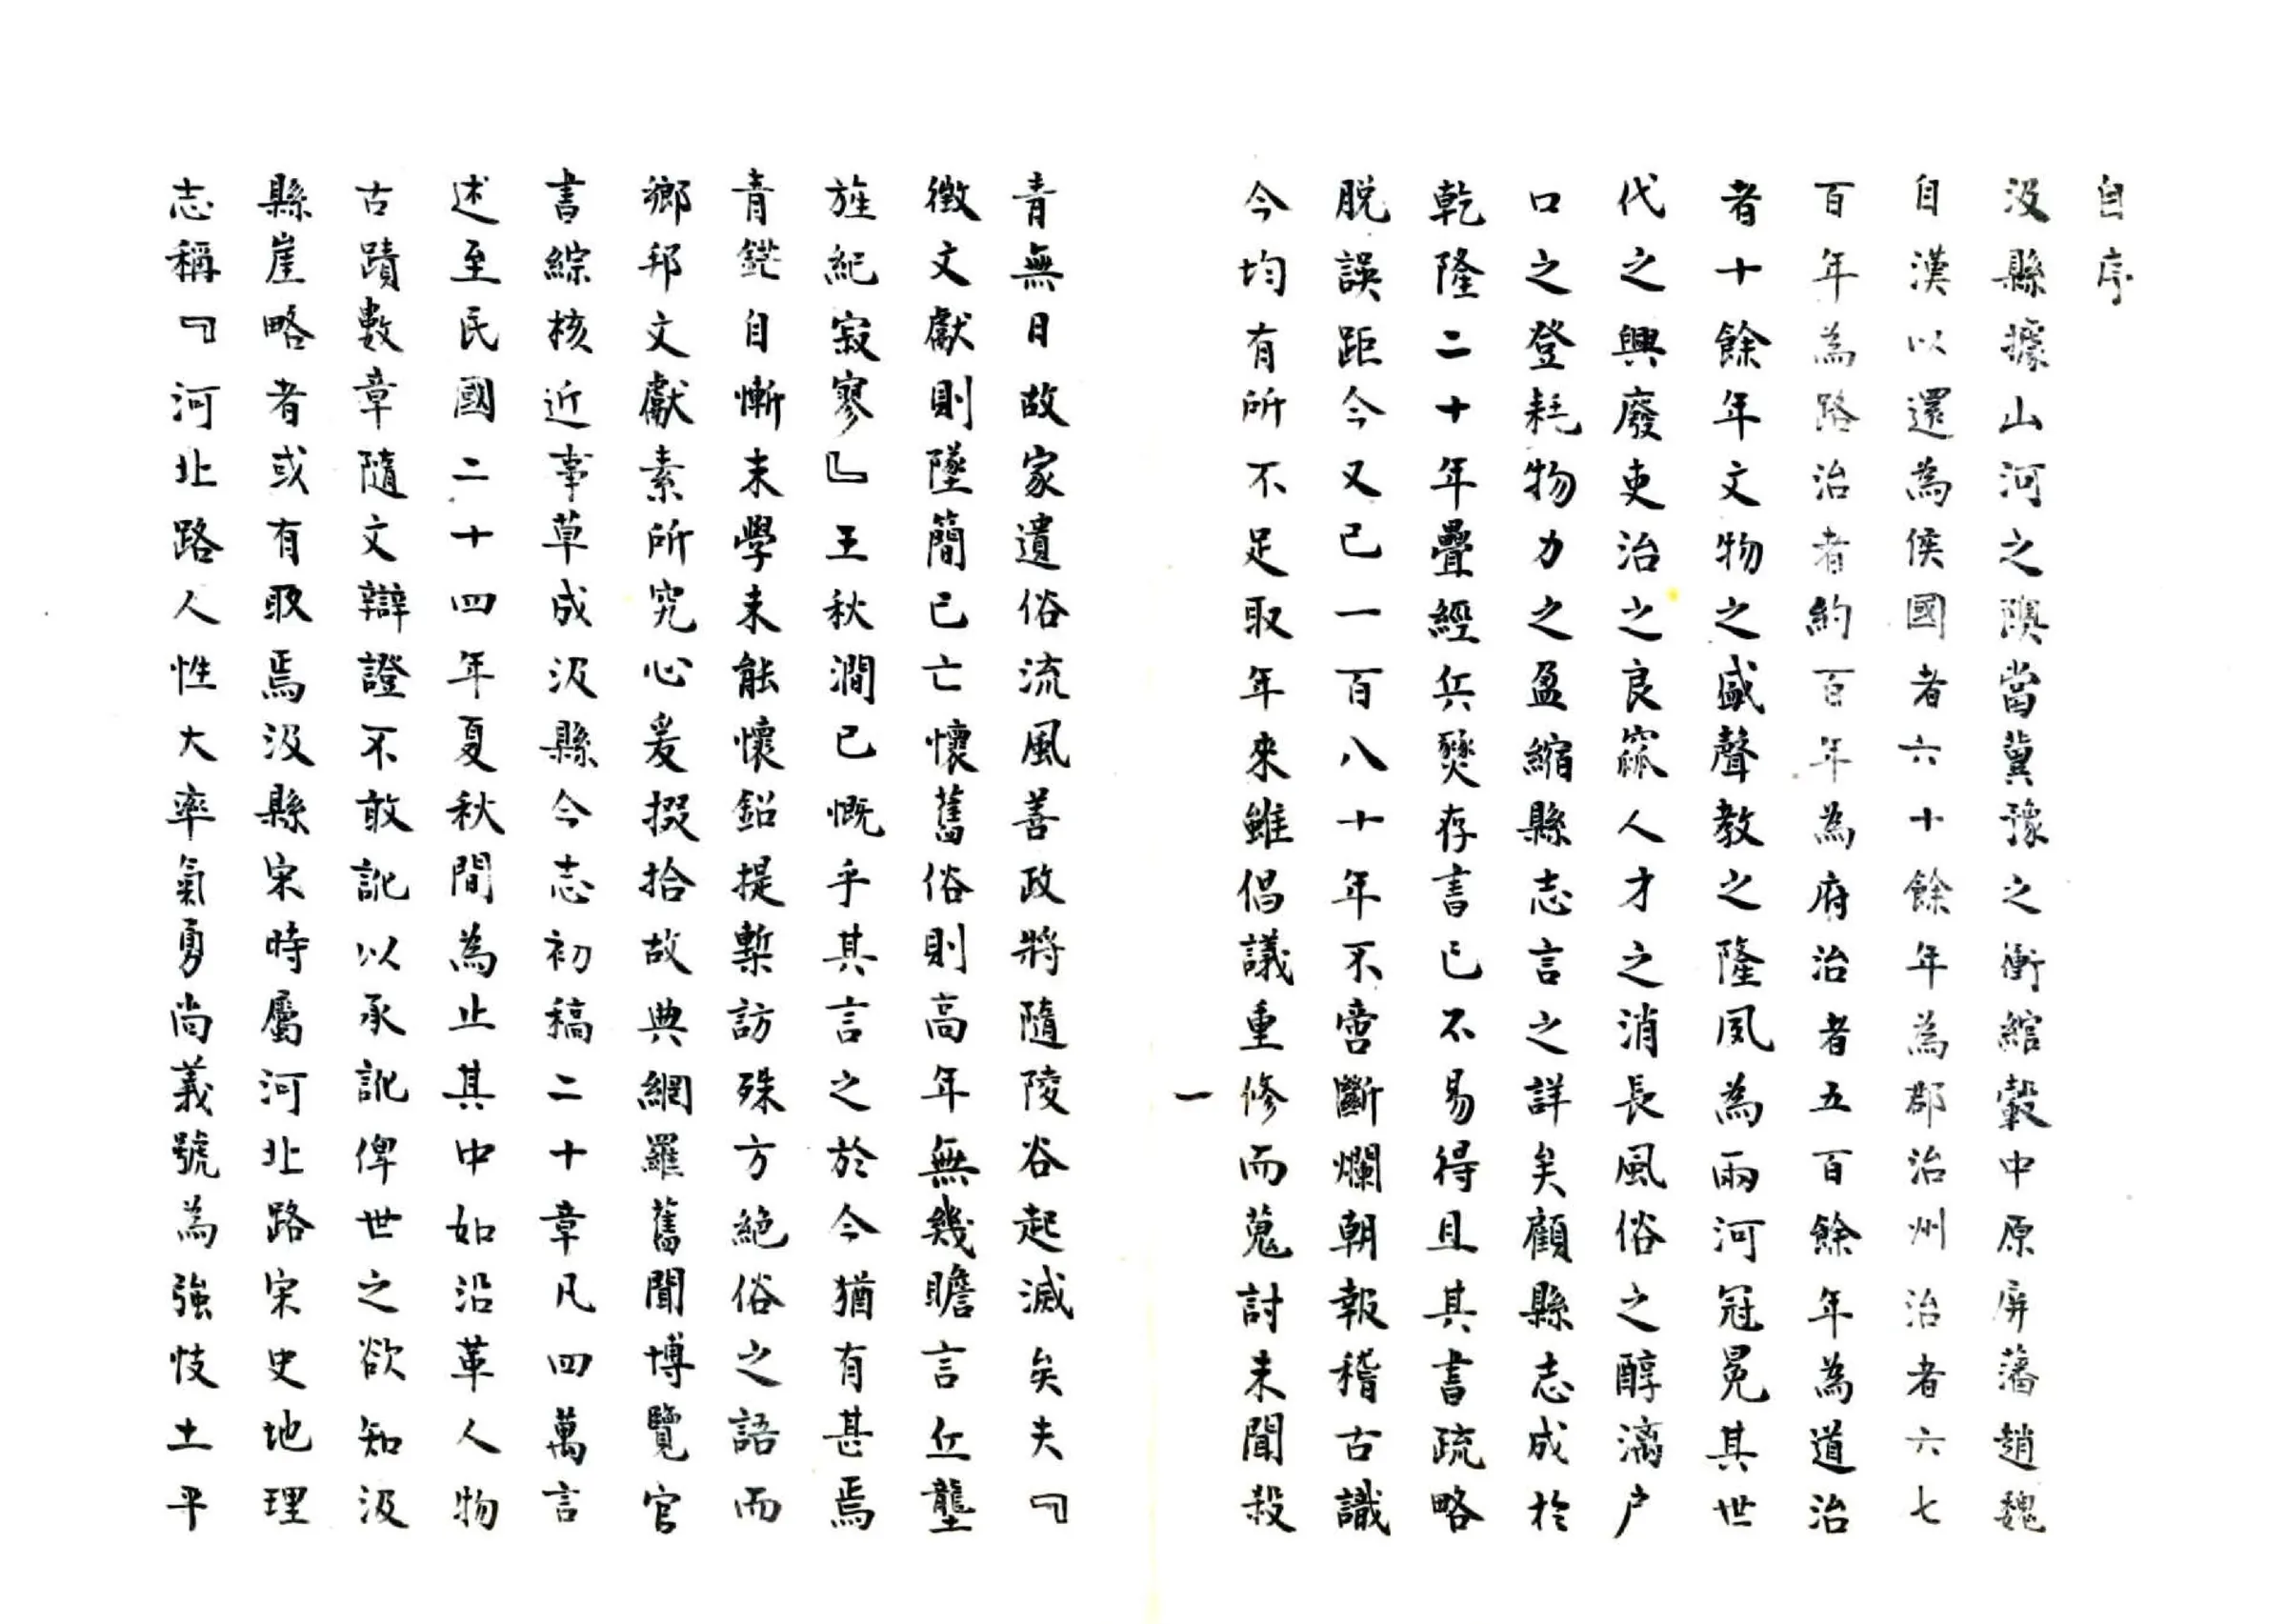 自序
汲縣據山河之隩當冀豫之衝綰轂中原屏藩趙魏
自漢以還為侯國者六十餘年為郡治州治者六七
百年為路治者約百年為府治者五百餘年為道治
者十餘年文物之盛聲教之隆夙為兩河冠冕其世
代之興廢吏治之良窳人才之消長風俗之醇漓户
口之登耗物力之盈縮縣志言之詳矣顧縣志成於
乾隆二十年疊經兵燹存書已不易得且其書疏略
脱誤距今又已一百八十年不啻斷爛朝報稽古識
今均有所不足取年來雖倡議重修而蒐討未聞殺
一
青無日故家遺俗流風善政將隨陵谷起滅矣夫『
徵文獻則墜簡已亡懷舊俗則高年無幾瞻言丘壟
旌紀寂寥』王秋澗已慨乎其言之於今猶有甚焉
青鐙自慚末學未能懷鉛提槧訪殊方絕俗之語而
鄉邦文獻素所究心爰掇拾故典網羅舊聞博覽官
書綜核近事草成汲縣今志初稿二十章凡四萬言
述至民國二十四年夏秋間為止其中如沿革人物
古蹟數章隨文辯證不敢訛以承訛俾世之欲知汲
縣崖略者或有取焉汲縣宋時屬河北路宋史地理
志稱『河北路人性大率氣勇尚義號為強忮土平